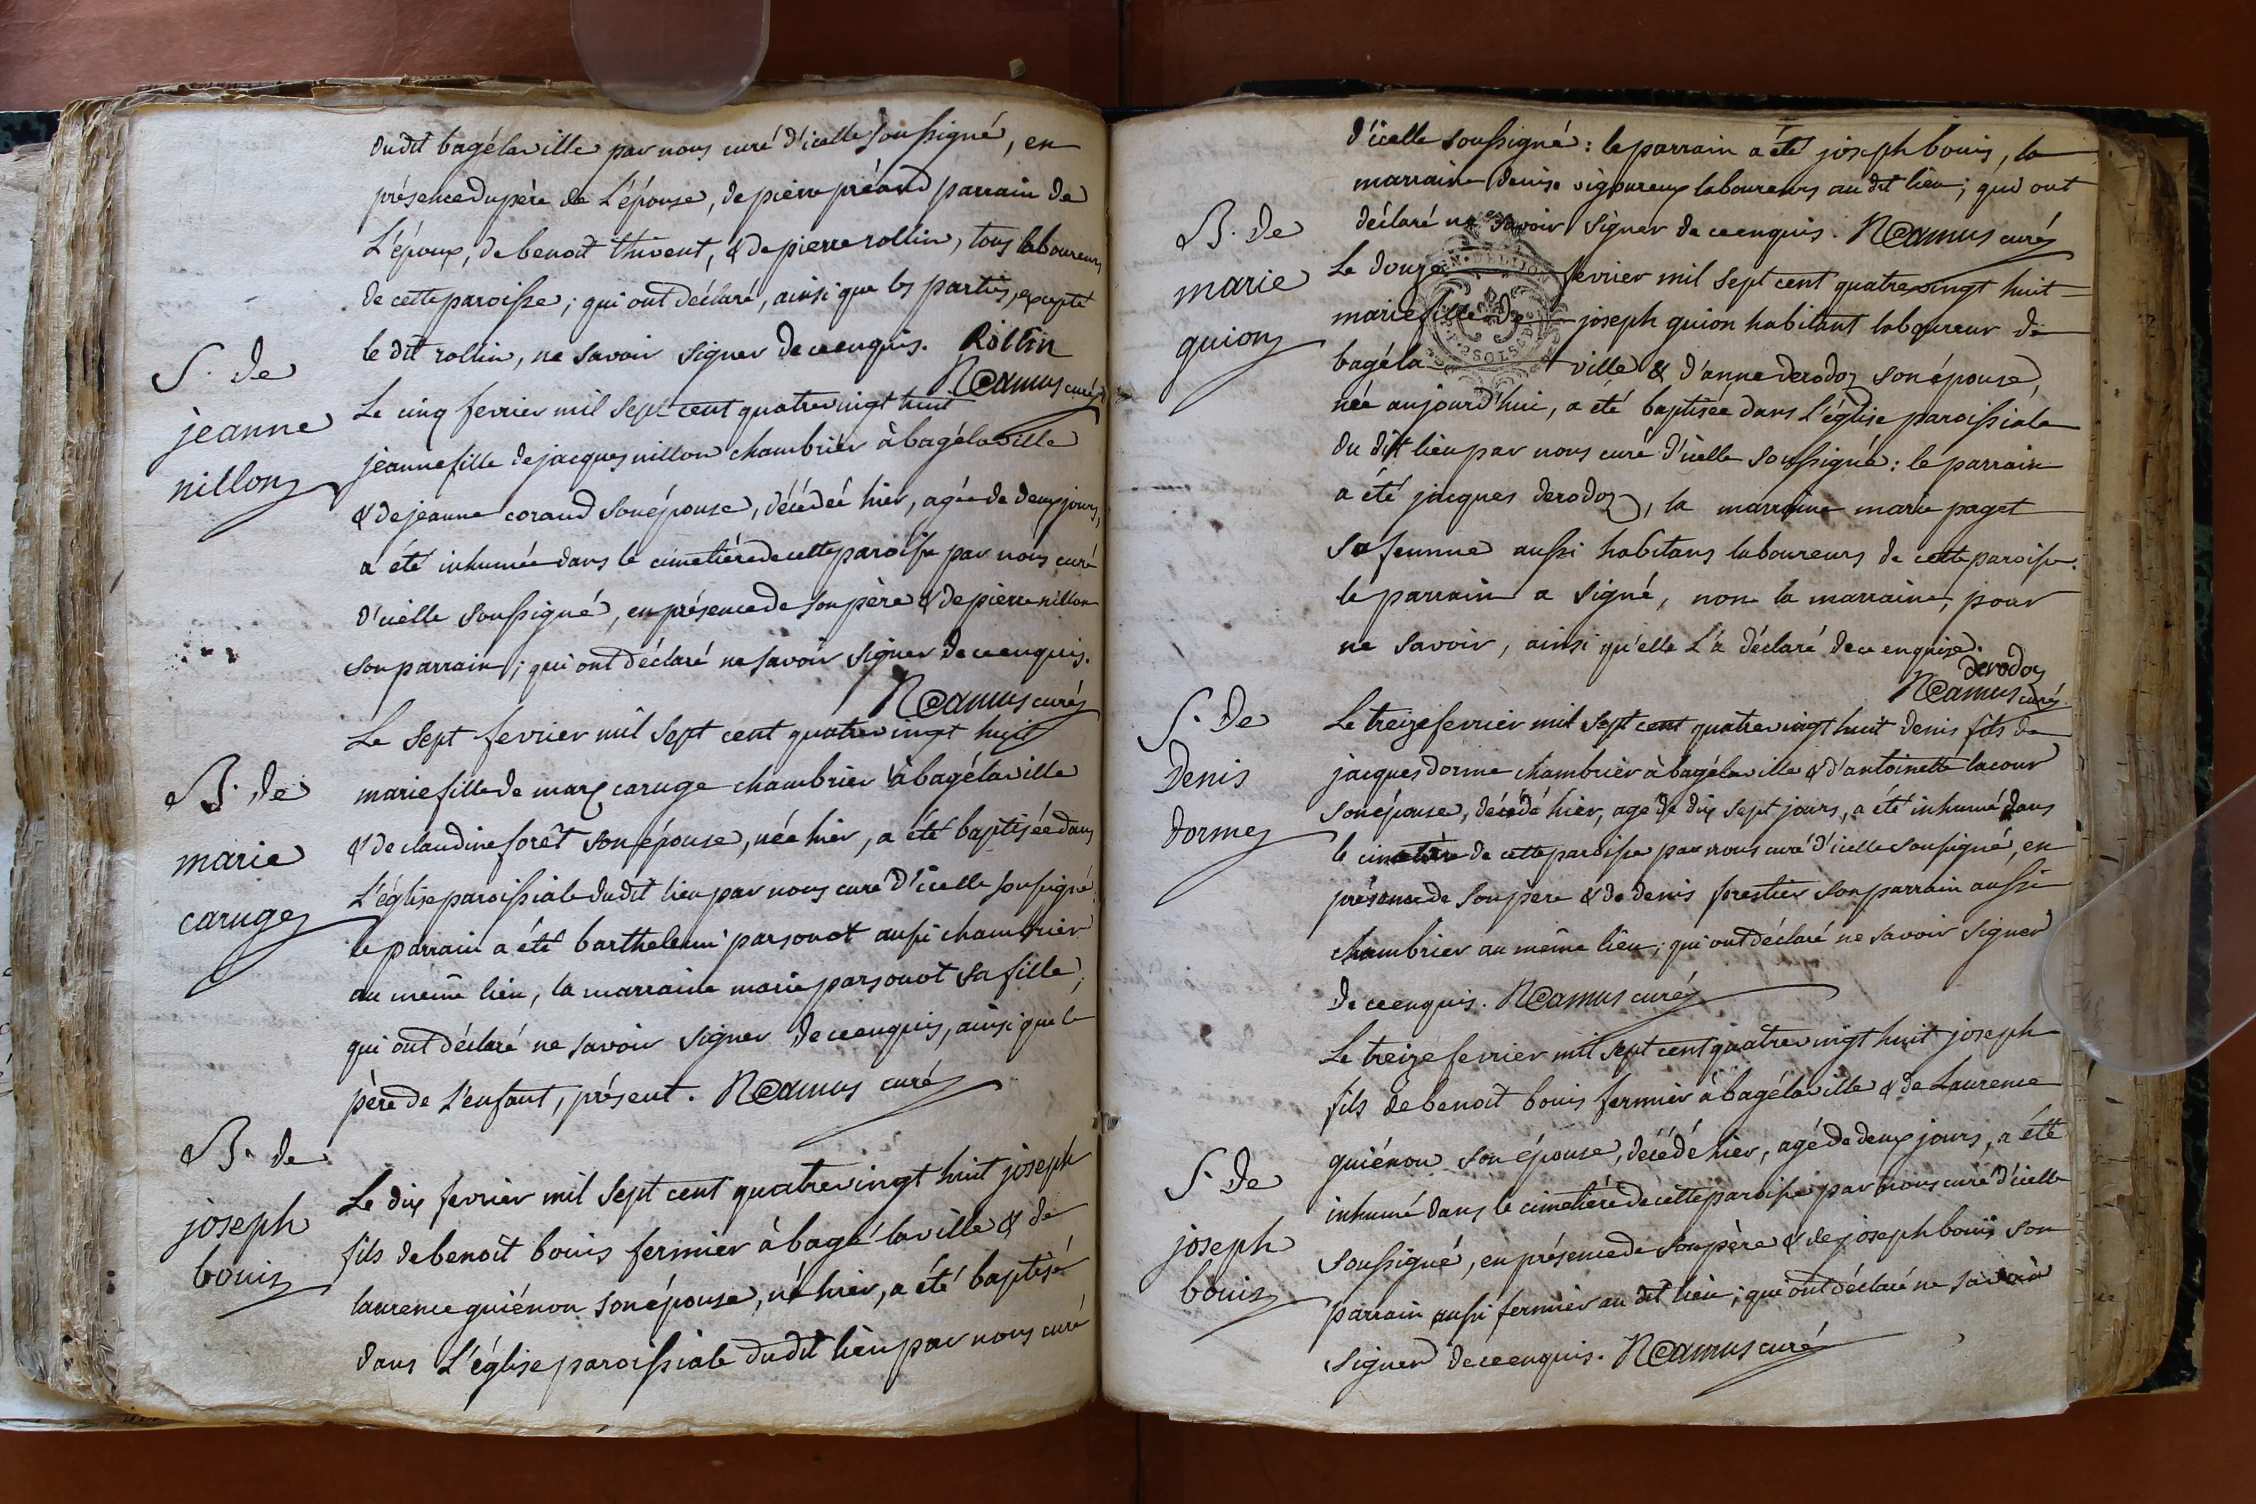 dudit bagélaville par nous curé d'icelle soussigné, en
présence du père de L'épouse, de pierre préaud parrain de
L'époux, de benoit thivent, & de pierre rollin, tous laboureurs
de cette paroisse; qui ont déclaré, ainsi que les parties, excepté
le dit rollin, ne savoir signer de ce enquis. Rollin
N Camus curé
S. de
jeanne
nillon
Le cinq fevrier mil sept cent quatrevingt huit
jeanne fille de jacques nillon chambrier à bagélaville
& de jeanne coraud son épouse, décédée hier, agée de deux jours,
a été inhumée dans le cimetière de cette paroisse par nous curé
d'icelle soussigné, en présence de son père & de pierre nillon
son parrain; qui ont déclaré ne savoir signer de ce enquis.
N Camus curé
B. de
marie
caruge
Le sept fevrier mil sept cent quatrevingt huit
marie fille de marx caruge chambrier à bagélaville
& de claudine forêt son épouse, née hier, a été baptisée dans
L'église paroissiale dudit lieu par nous curé d'icelle soussigné:
le parrain a été barthelemi parsonot aussi chambrier
au même lieu, la marraine marie parsonot sa fille;
qui ont déclaré ne savoir signer de ce enquis, ainsi que le
père de L'enfant, présent. N Camus curé
B. de
joseph
bouis
Le dix fevrier mil sept cent quatrevingt huit joseph
fils de benoit bouis fermier à bagélaville & de
laurence guiénon son épouse, né hier, a été baptisé
dans L'église paroissiale dudit lieu par nous curé
d'icelle soussigné: le parrain a été joseph bouis, la
marraine denise vigoureux laboureurs au dit lieu; qui ont
déclaré ne savoir signer de ce enquis. N Camus curé
B. de
marie
guion
Le douze fevrier mil sept cent quatrevingt huit
marie fille de joseph guion habitant laboureur de
bagéla ville & d'anne derodoz son épouse,
née aujourd'hui, a été baptisée dans L'église paroissiale
du dit lieu par nous curé d'icelle soussigné: le parrain
a été jacques derodoz, la marraine marie paget
sa femme aussi habitans laboureurs de cette paroisse.
le parrain a signé, non la marraine, pour
ne savoir, ainsi qu'elle L'a déclaré de ce enquise.
derodoz
N Camus curé
S. de
Denis
dorme
Le treize fevrier mil sept cent quatrevingt huit denis fils de
jacques dorme chambrier à bagélaville & d'antoinette lacour
son épouse, décédé hier, agé de dix sept jours, a été inhumé dans
le cimetière de cette paroisse par nous curé d'icelle soussigné, en
présence de son père & de denis forestier son parrain aussi
chambrier au même lieu; qui ont déclaré ne savoir signer
de ce enquis. N Camus curé
S. de
joseph
bouis
Le treize fevrier mil sept cent quatrevingt huit joseph
fils de benoit bouis fermier à bagélaville & de Laurence
guiénon son épouse, décédé hier, agé de deux jours, a été
inhumé dans le cimetière de cette paroisse par nous curé d'icelle
soussigné, en présence de son père & de joseph bouis son
parrain aussi fermier au dit lieu; qui ont déclaré ne savoir
signer de ce enquis. N Camus curé